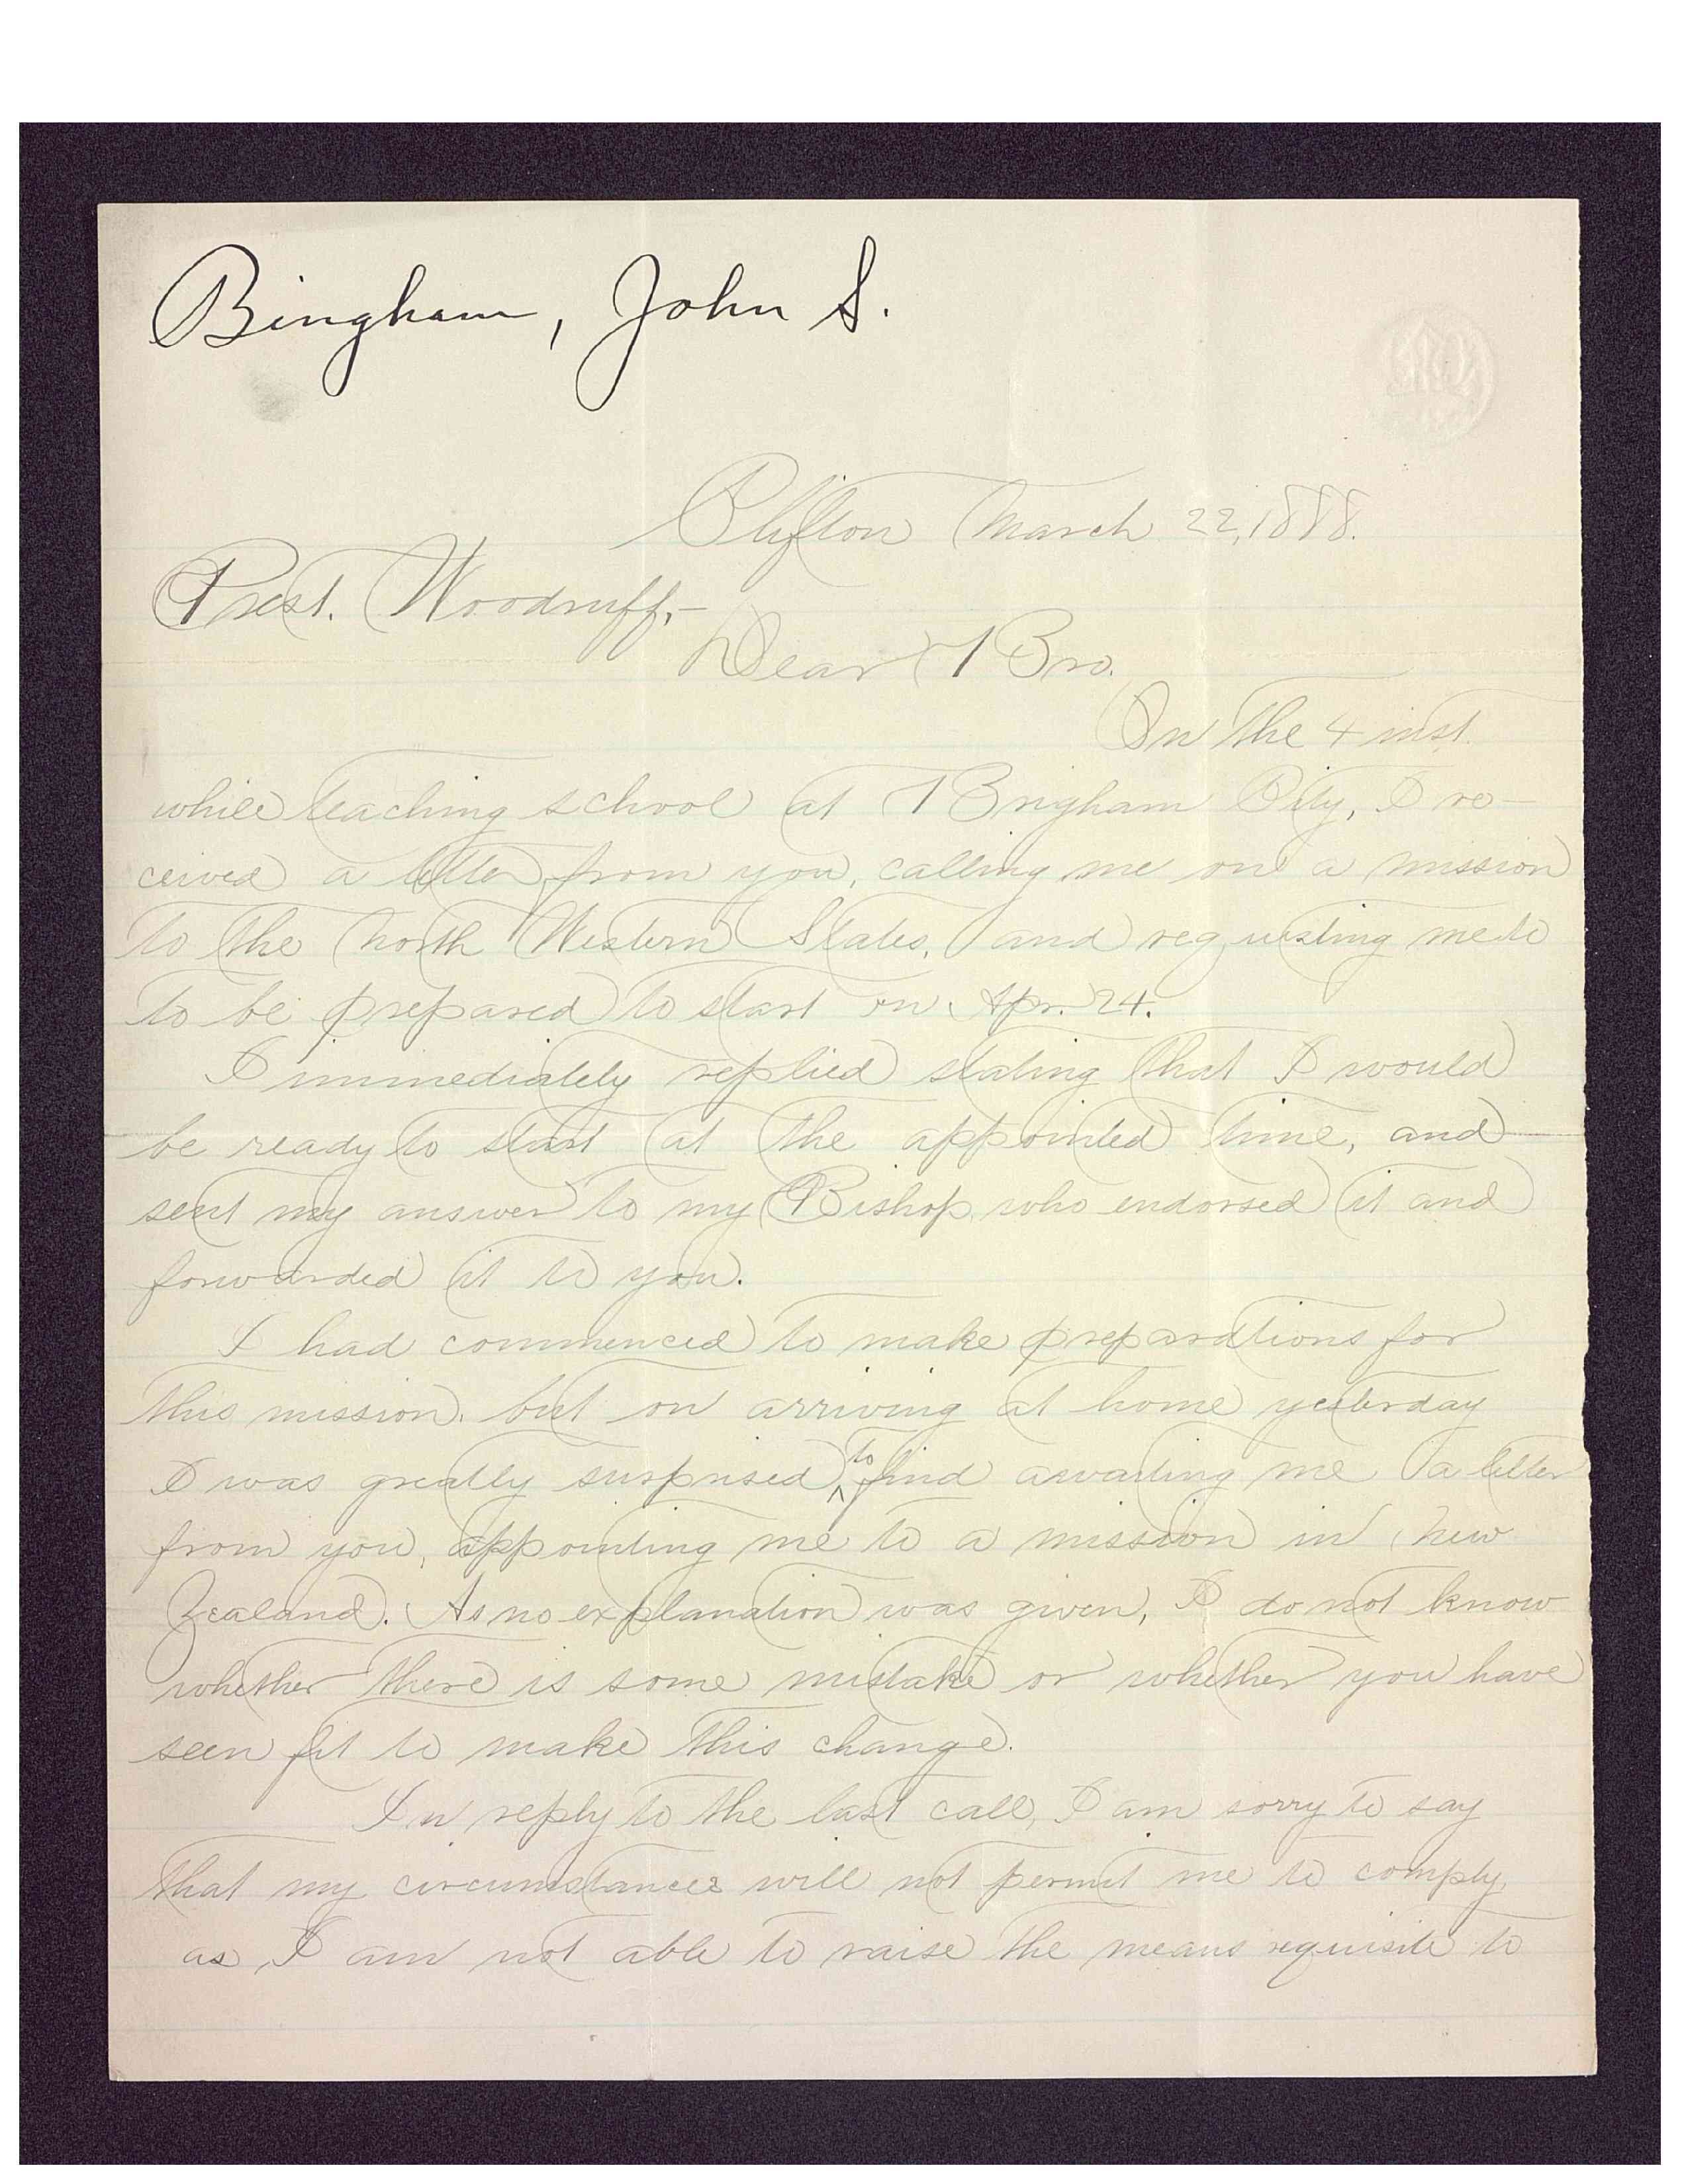 Bingham, John S.
Clifton March 22, 1888.
Prest. Woodruff,-
Dear Bro.
On the 4 inst.
while teaching school at Brigham City, I re-
ceived a letter from you, calling me on a mission
to the North Western States, and requesting me to
to be prepared to start on Apr. 24.
I immediately replied stating that I would
be ready to start at the appointed time, and
sent my answer to my Bishop who endorsed it and
forwarded it to you.
I had commenced to make preparations for
this mission, but on arriving at home yesterday
I was greatly surprised to find awaiting me a letter
from you, appointing me to a mission in New
Zealand. As no explanation was given, I do not know
whether there is some mistake or whether you have
seen fit to make this change.
In reply to the last call, I am sorry to say
that my circumstances will not permit me to comply,
as I am not able to raise the means requisite to